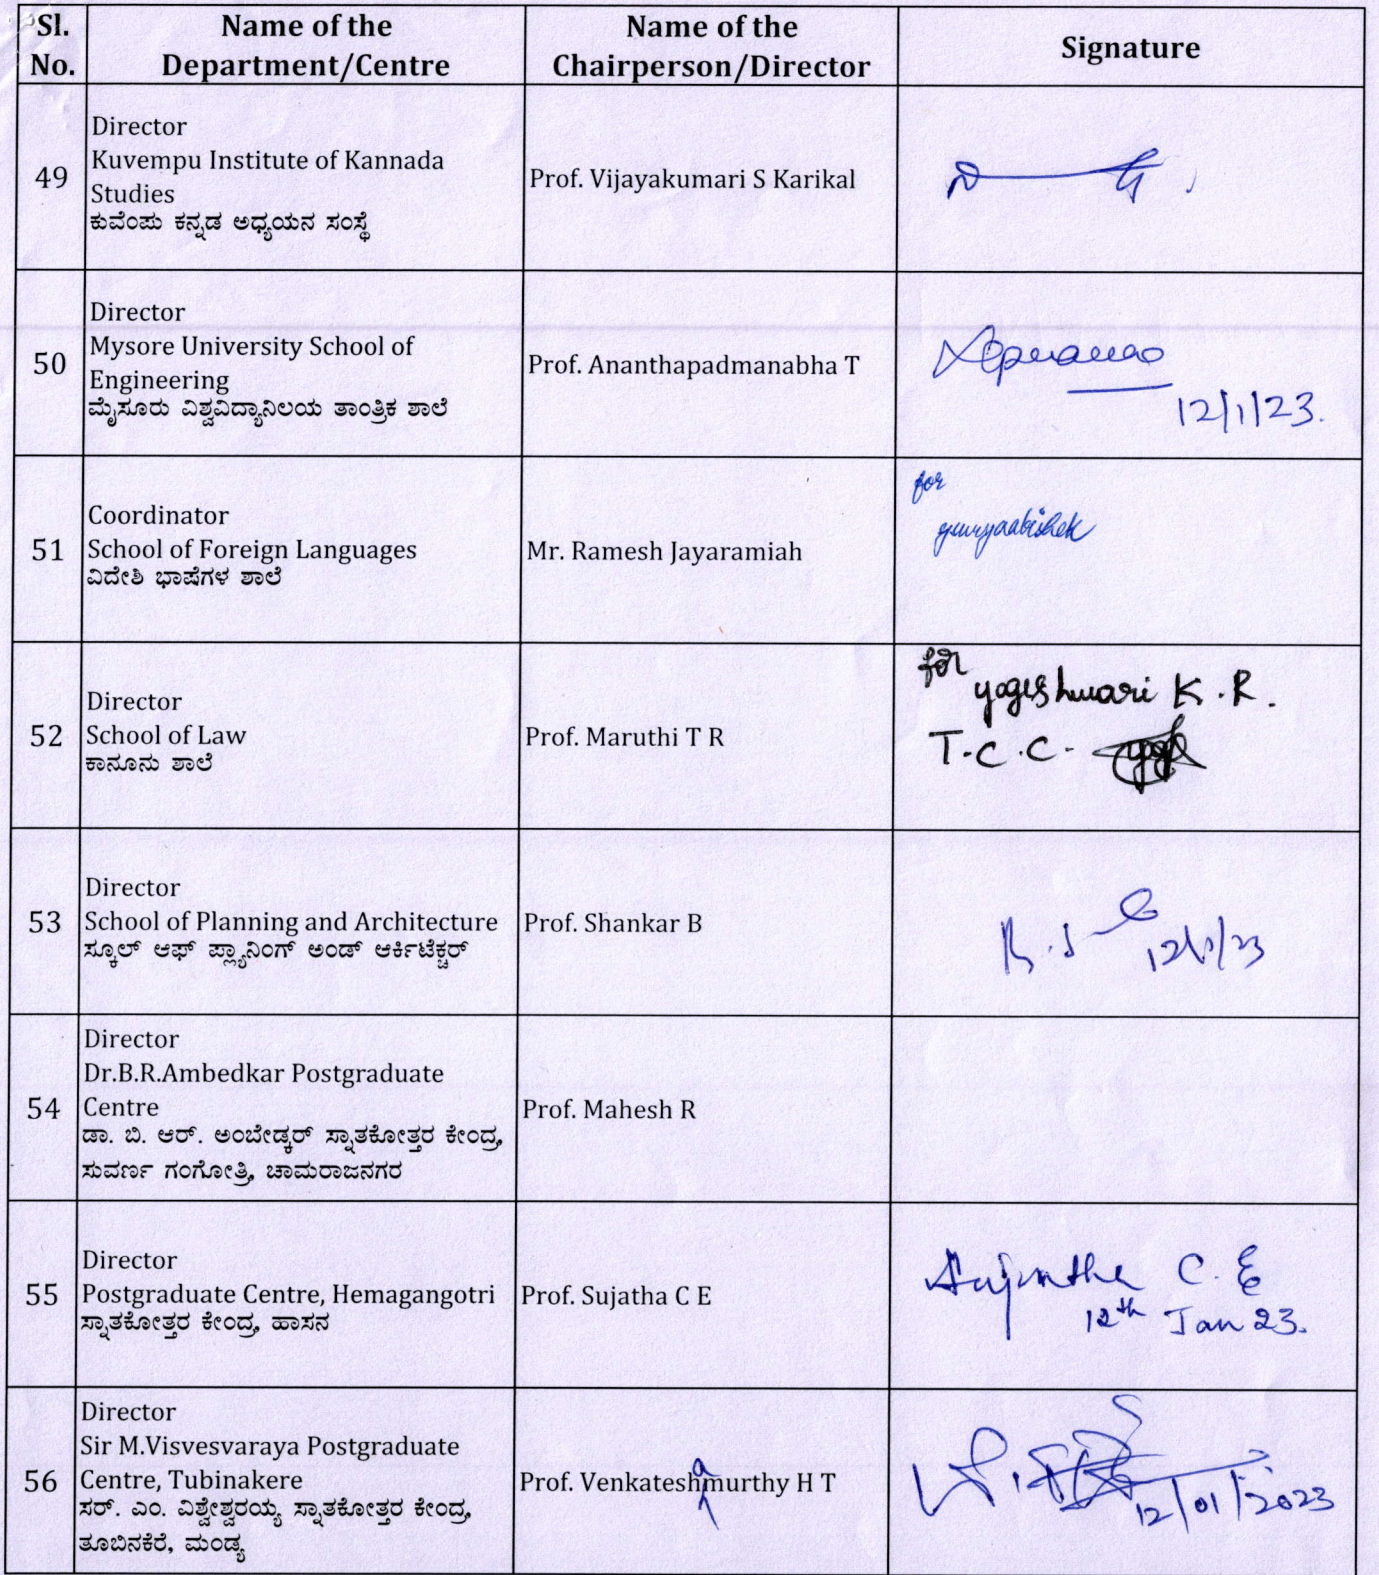 Sl. No.
Name of the Department/Centre
Name of the Chairperson/Director
Signature
49
Director
Kuvempu Institute of Kannada
Studies
ಕುವೆಂಪು ಕನ್ನಡ ಅಧ್ಯಯನ ಸಂಸ್ಥೆ
Prof. Vijayakumari S Karikal
50
Director
Mysore University School of
Engineering
ಮೈಸೂರು ವಿಶ್ವವಿದ್ಯಾನಿಲಯ ತಾಂತ್ರಿಕ ಶಾಲೆ
Prof. Ananthapadmanabha T
12/1/23.
51
Coordinator
School of Foreign Languages
ವಿದೇಶಿ ಭಾಷೆಗಳ ಶಾಲೆ
Mr. Ramesh Jayaramiah
for
52
Director
School of Law
ಕಾನೂನು ಶಾಲೆ
Prof. Maruthi T R
for
yogeshwari K.R.
T.C.C.
53
Director
School of Planning and Architecture
ಸ್ಕೂಲ್ ಆಫ್ ಪ್ಲ್ಯಾನಿಂಗ್ ಅಂಡ್ ಆರ್ಕಿಟೆಕ್ಚರ್
Prof. Shankar B
12/1/23
54
Director
Dr.B.R.Ambedkar Postgraduate
Centre
ಡಾ. ಬಿ. ಆರ್. ಅಂಬೇಡ್ಕರ್ ಸ್ನಾತಕೋತ್ತರ ಕೇಂದ್ರ,
ಸುವರ್ಣ ಗಂಗೋತ್ರಿ, ಚಾಮರಾಜನಗರ
Prof. Mahesh R
55
Director
Postgraduate Centre, Hemagangotri
ಸ್ನಾತಕೋತ್ತರ ಕೇಂದ್ರ, ಹಾಸನ
Prof. Sujatha C E
Sujatha C. E
12th Jan 23.
56
Director
Sir M.Visvesvaraya Postgraduate
Centre, Tubinakere
ಸರ್. ಎಂ. ವಿಶ್ವೇಶ್ವರಯ್ಯ ಸ್ನಾತಕೋತ್ತರ ಕೇಂದ್ರ,
ತೂಬಿನಕೆರೆ, ಮಂಡ್ಯ
Prof. Venkateshamurthy H T
12/01/2023